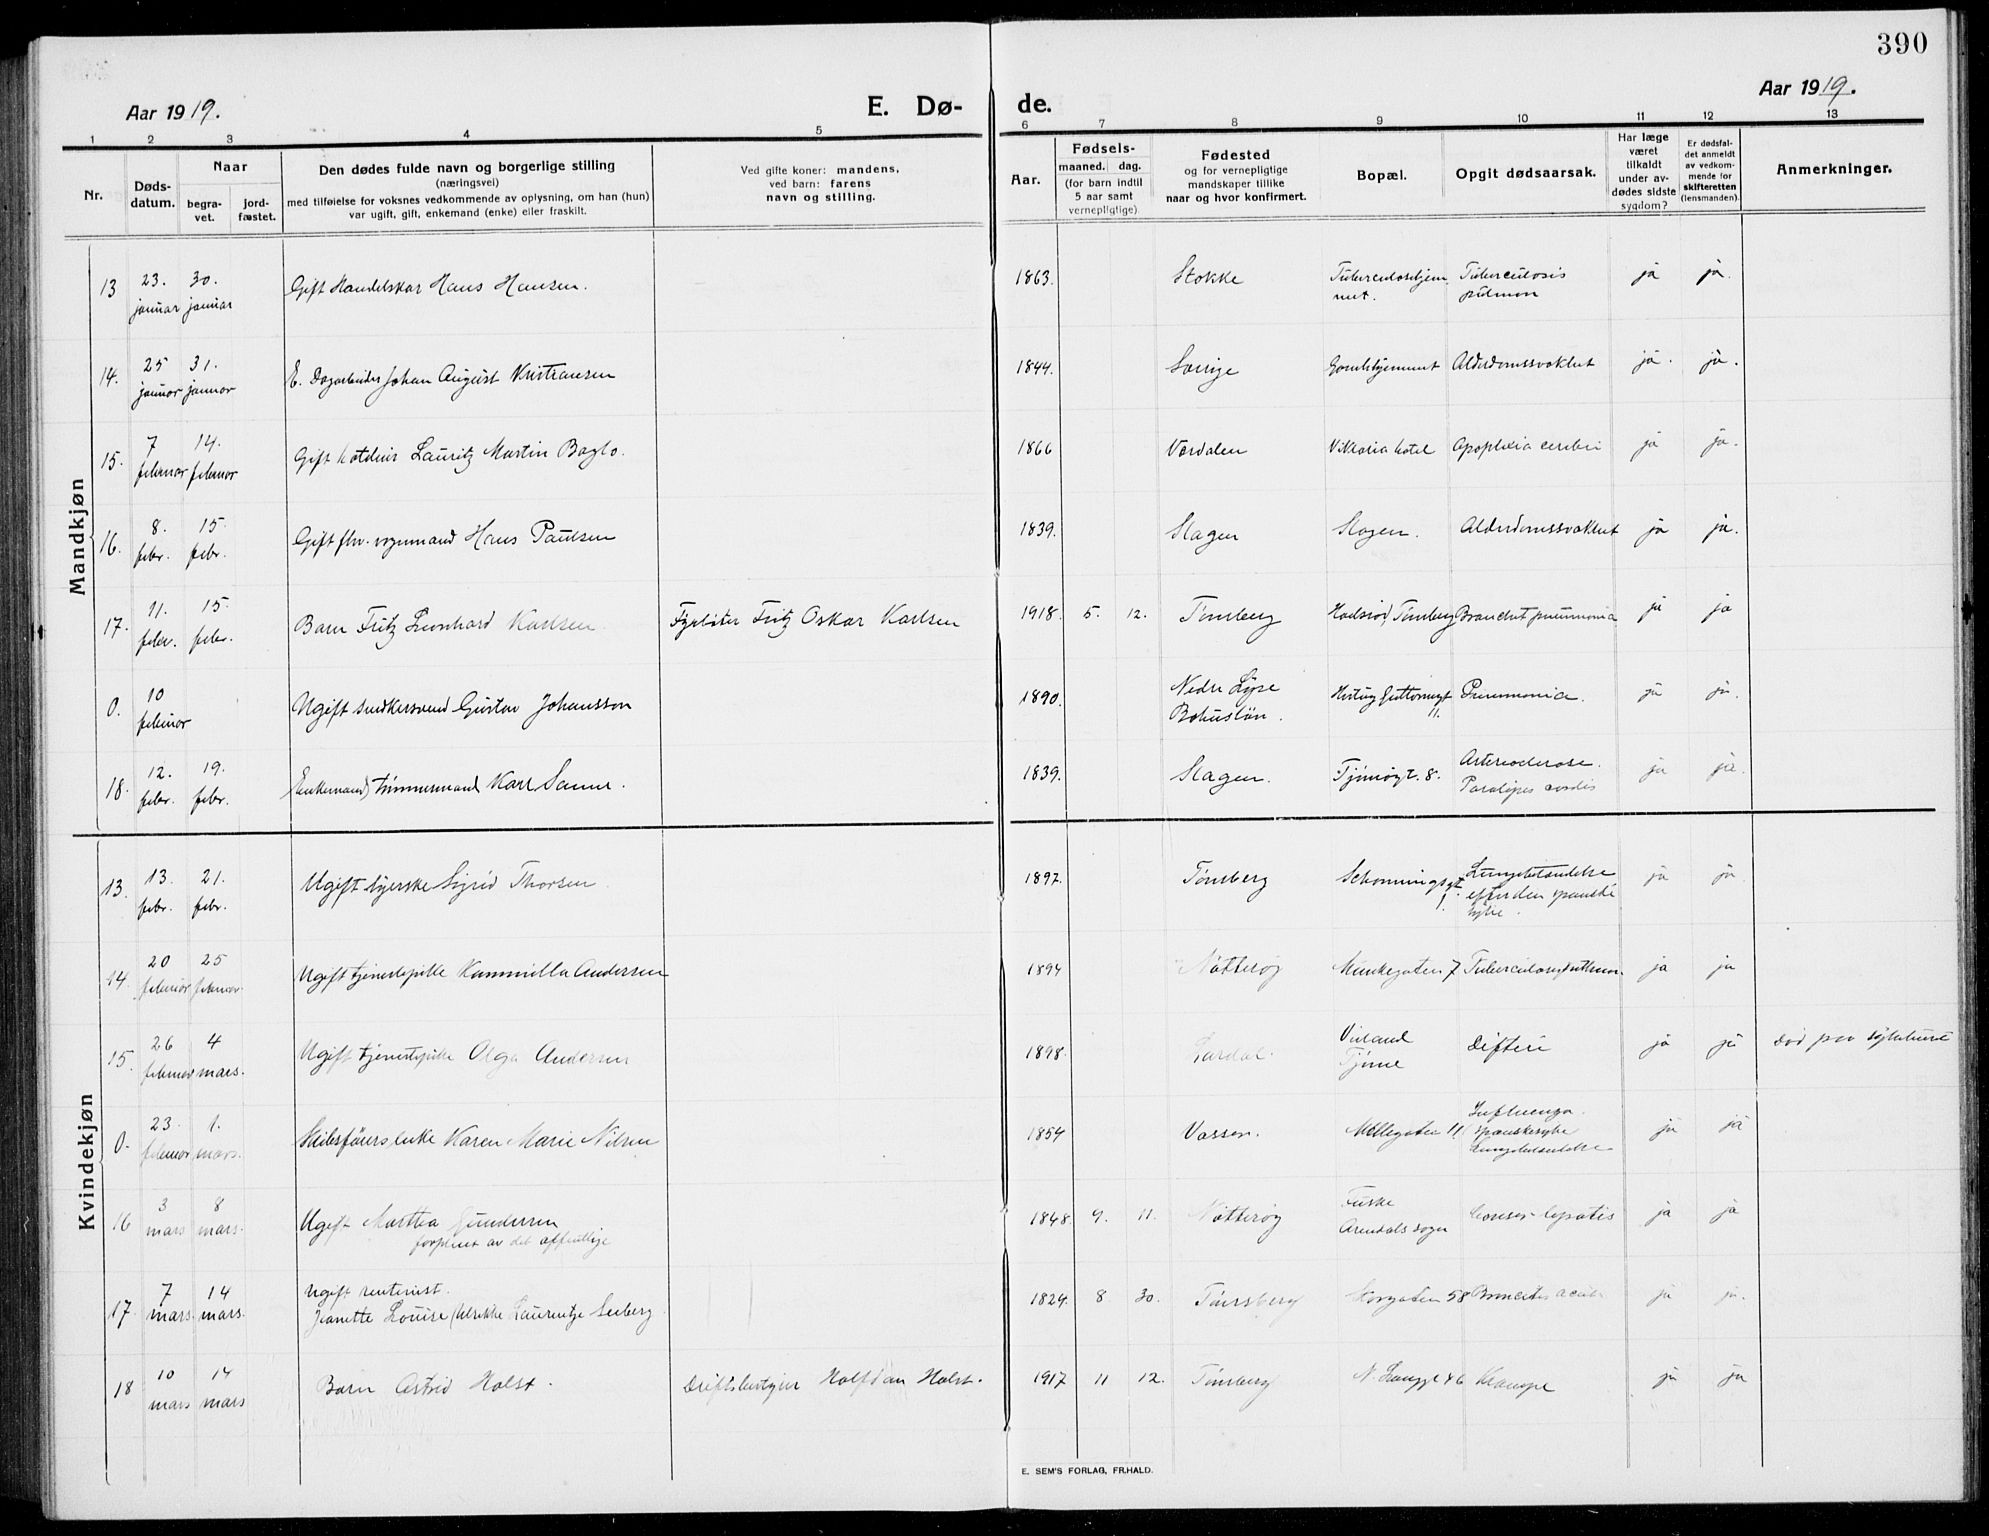 390
Aar 1919.
E. Dø-
de.
Aar 1919.
1 2 3 4 5 6 7 8 9 10 11 12 13
Nr.
Døds-
datum.
Naar
begra-
vet.
jord-
fæstet.
Den dødes fulde navn og borgerlige stilling
(næringsvei)
med tilføielse for voksnes vedkommende av oplysning, om han (hun)
var ugift, gift, enkemand (enke) eller fraskilt.
Ved gifte koner: mandens,
ved barn: farens
navn og stilling.
Aar.
Fødsels-
maaned. dag.
(for barn indtil
5 aar samt
vernepligtige)
Fødested
og for vernepligtige
mandskaper tillike
naar og hvor konfirmert.
Bopæl.
Opgit dødsaarsak.
Har læge
været
tilkaldt
under av-
dødes sidste
sygdom?
Er dødsfal-
det anmeldt
av vedkom-
mende for
skifteretten
(lensmanden).
Anmerkninger.
Mandkjøn
13 23. januar 30. januar Gift Handelskar Hans Hansen. 1863. Stokke Tuberculosehjem
met. Tuberculosis
pulmon ja ja.
14. 25 januar 31. januar E. Dagarbeider Johan August Kristiansen 1844. Sverige Gamlehjemmet Alderdomssvakhet ja. ja.
15. 7 februar 14. februar Gift hoteleier Lauritz Martin Baglo. 1866 Værdalen Viktoria hotel Apoplexia cerebri ja ja.
16. 8. febr. 15. febr. Gift fhv. vognmand Hans Paulsen 1839. Slagen Slagen. Alderdomssvakhet ja ja.
17. 11. febr. 15. febr. Barn Fritz Leonhard Karlsen. Fyrbøter Fritz Oskar Karlsen 1918. 5. 12. Tønsberg Tønsberg pneumonia ja ja
0. 10 februar Ugift snedkersvend Gustav Johansson 1890. Nedre
Bohuslän. Hertug Guttormsgt
11. Pneumonia. ja ja.
18. 12. febr. 19. febr. Enkemand, tømmermand Karl Sanne. 1839. Slagen. Tjømøgt. 8. Arteriosclerose.
cordis ja ja.
Kvindekjøn
13. 13. febr. 21. febr. Ugift syerske Sigrid Thorsen. 1897. Tønsberg Schonningsgt
1. Lungebetændelse
efter den spanske
syke. ja ja.
14. 20 februar 25 februar. Ugift tjenestepike Kammilla Andersen 1894 Nøtterøy Munkegaten 7 ja ja
15. 26 februar 4 mars. Ugift tjenestepike Olga Andersen 1898. Lardal.
Tjøme Difteri ja ja Død paa sykehuset
0. 23. februar 1. mars. Skibsførers enke Karen Marie Nilsen 1854 Vassen. Møllegaten 11 Influenza.
spanskesyke
Lungebetændelse ja ja
16 3 mars 8 mars. Ugift Marthea Gundersen
forpleiet av det offentlige 1848. 9. 11. Nøtterøy
Arendals sogn Cancer hepatis ja ja
17. 7 mars. 14 mars. Ugift rentenist.
Jeanette Louise Ulrikke Laurentze Seeberg 1824. 8 30. Tønsberg Storgaten 58 Broncitis acuta ja ja.
18 10 mars 14 mars Barn Astrid Holst. Driftsbestyrer Halfdan Holst. 1917 11 12. Tønsberg N. Langgt 46 Krampe ja ja
E. SEM'S FORLAG, FR.HALD.